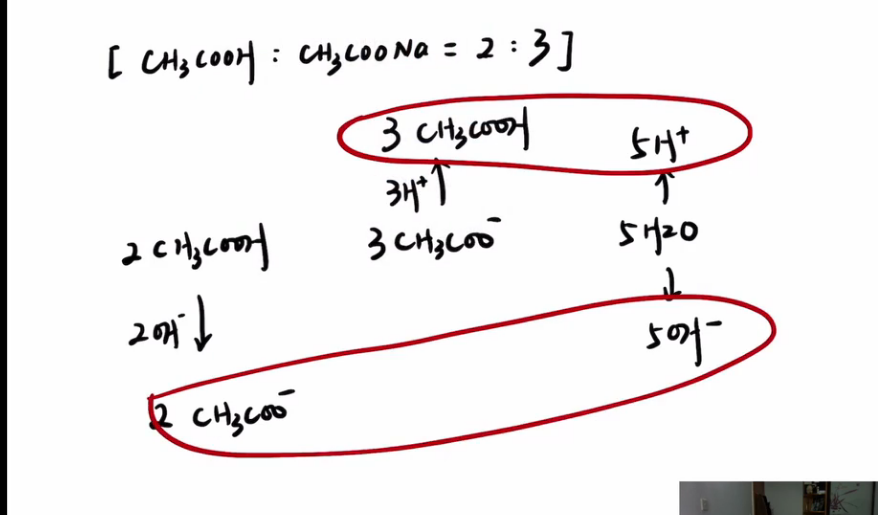 [ CH₃COOH : CH₃COONa = 2 : 3 ]
3 CH₃COOH 5H⁺
3H⁺↑ ↑
2 CH₃COOH 3 CH₃COO⁻ 5H2O
2OH⁻↓ ↓
5OH⁻
2 CH₃COO⁻